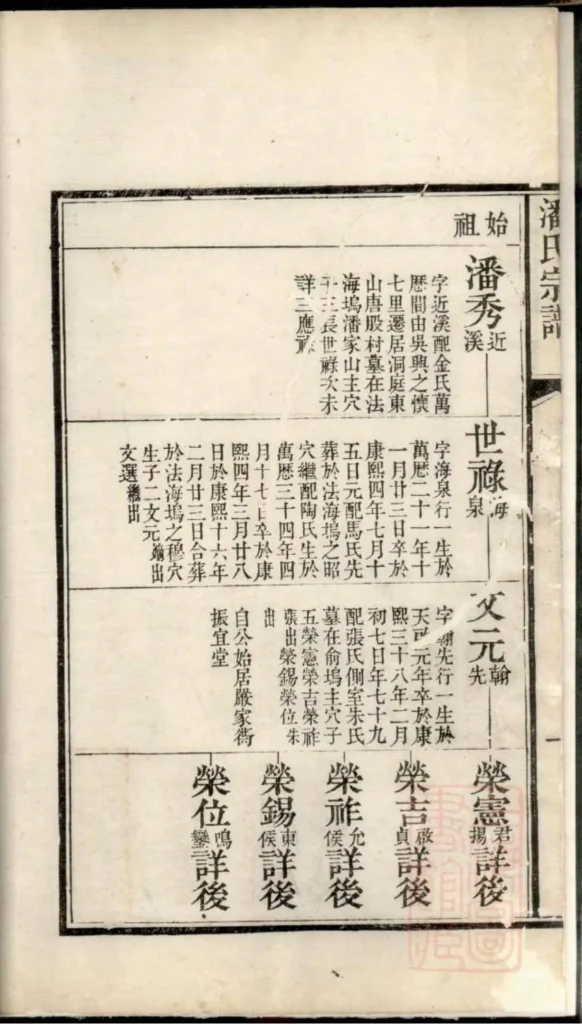 潘氏宗譜
始祖
潘秀近溪
字近溪配金氏萬
歷間由吳興之懷
七里遷居洞庭東
山唐股村墓在法
海塢潘家山主穴
子三長世祿次未
詳三應祿
世祿海泉
字海泉行一生於
萬歷二十一年十
一月廿三日卒於
康熙四年七月十
五日元配馬氏先
葬於法海塢之昭
穴繼配陶氏生於
萬歷三十四年四
月十七日卒於康
熙四年三月廿八
日於康熙十六年
二月廿三日合葬
於法海塢之穆穴
生子二文元繼出
文選繼出
文元翰先
字翰先行一生於
天啟元年卒於康
熙三十八年二月
初七日年七十九
配張氏側室朱氏
墓在俞塢主穴子
五榮憲榮吉榮祚
張出榮錫榮位朱
出
自公始居嚴家衖
振宜堂
榮憲君揚詳後
榮吉啟貞詳後
榮祚允侯詳後
榮錫東侯詳後
榮位鳴鑾詳後
一